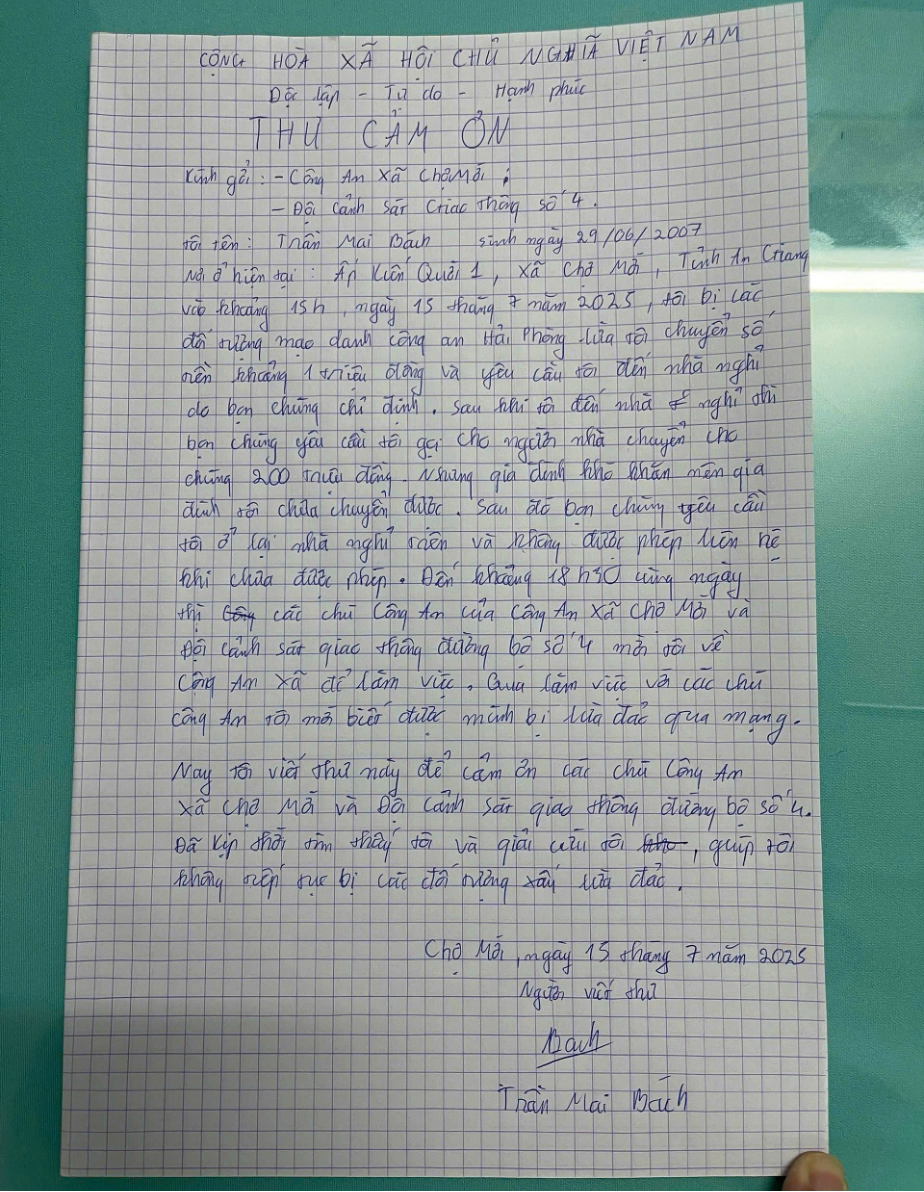 CỘNG HÒA XÃ HỘI CHỦ NGHĨA VIỆT NAM
Độc lập - Tự do - Hạnh phúc
THƯ CẢM ƠN
Kính gửi : - Công An xã Chợ Mới ;
- Đội cảnh sát Giao thông số 4.
tôi tên : Trần Mai Bách sinh ngày 29/06/2007
Nơi ở hiện tại : Ấp Kiến Quới 1, xã Chợ Mới, Tỉnh An Giang
vào khoảng 15h, ngày 15 tháng 7 năm 2025, tôi bị các
đối tượng mạo danh công an Hải Phòng lừa tôi chuyển số
tiền khoảng 1 triệu đồng và yêu cầu tôi đến nhà nghỉ
do bọn chúng chỉ định. Sau khi tôi đến nhà nghỉ thì
bọn chúng yêu cầu tôi gọi cho người nhà chuyển cho
chúng 200 triệu đồng. Nhưng gia đình khó khăn nên gia
đình tôi chưa chuyển được. Sau đó bọn chúng yêu cầu
tôi ở lại nhà nghỉ trên và không được phép liên hệ
khi chưa được phép. Đến khoảng 18h30 cùng ngày
thì các chú Công An của Công An xã Chợ Mới và
Đội cảnh sát giao thông đường bộ số 4 mời tôi về
Công An xã để làm việc. Qua làm việc với các chú
Công An tôi mới biết được mình bị lừa đảo qua mạng.
Nay tôi viết thư này để cảm ơn các chú Công An
xã Chợ Mới và Đội Cảnh sát giao thông đường bộ số 4.
Đã kịp thời tìm thấy tôi và giải cứu tôi, giúp tôi
không tiếp tục bị các đối tượng xấu lừa đảo.
Chợ Mới, ngày 15 tháng 7 năm 2025
Người viết thư
Bách
Trần Mai Bách